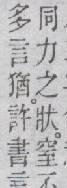 同力之狀。窒不
多言猶。許書言